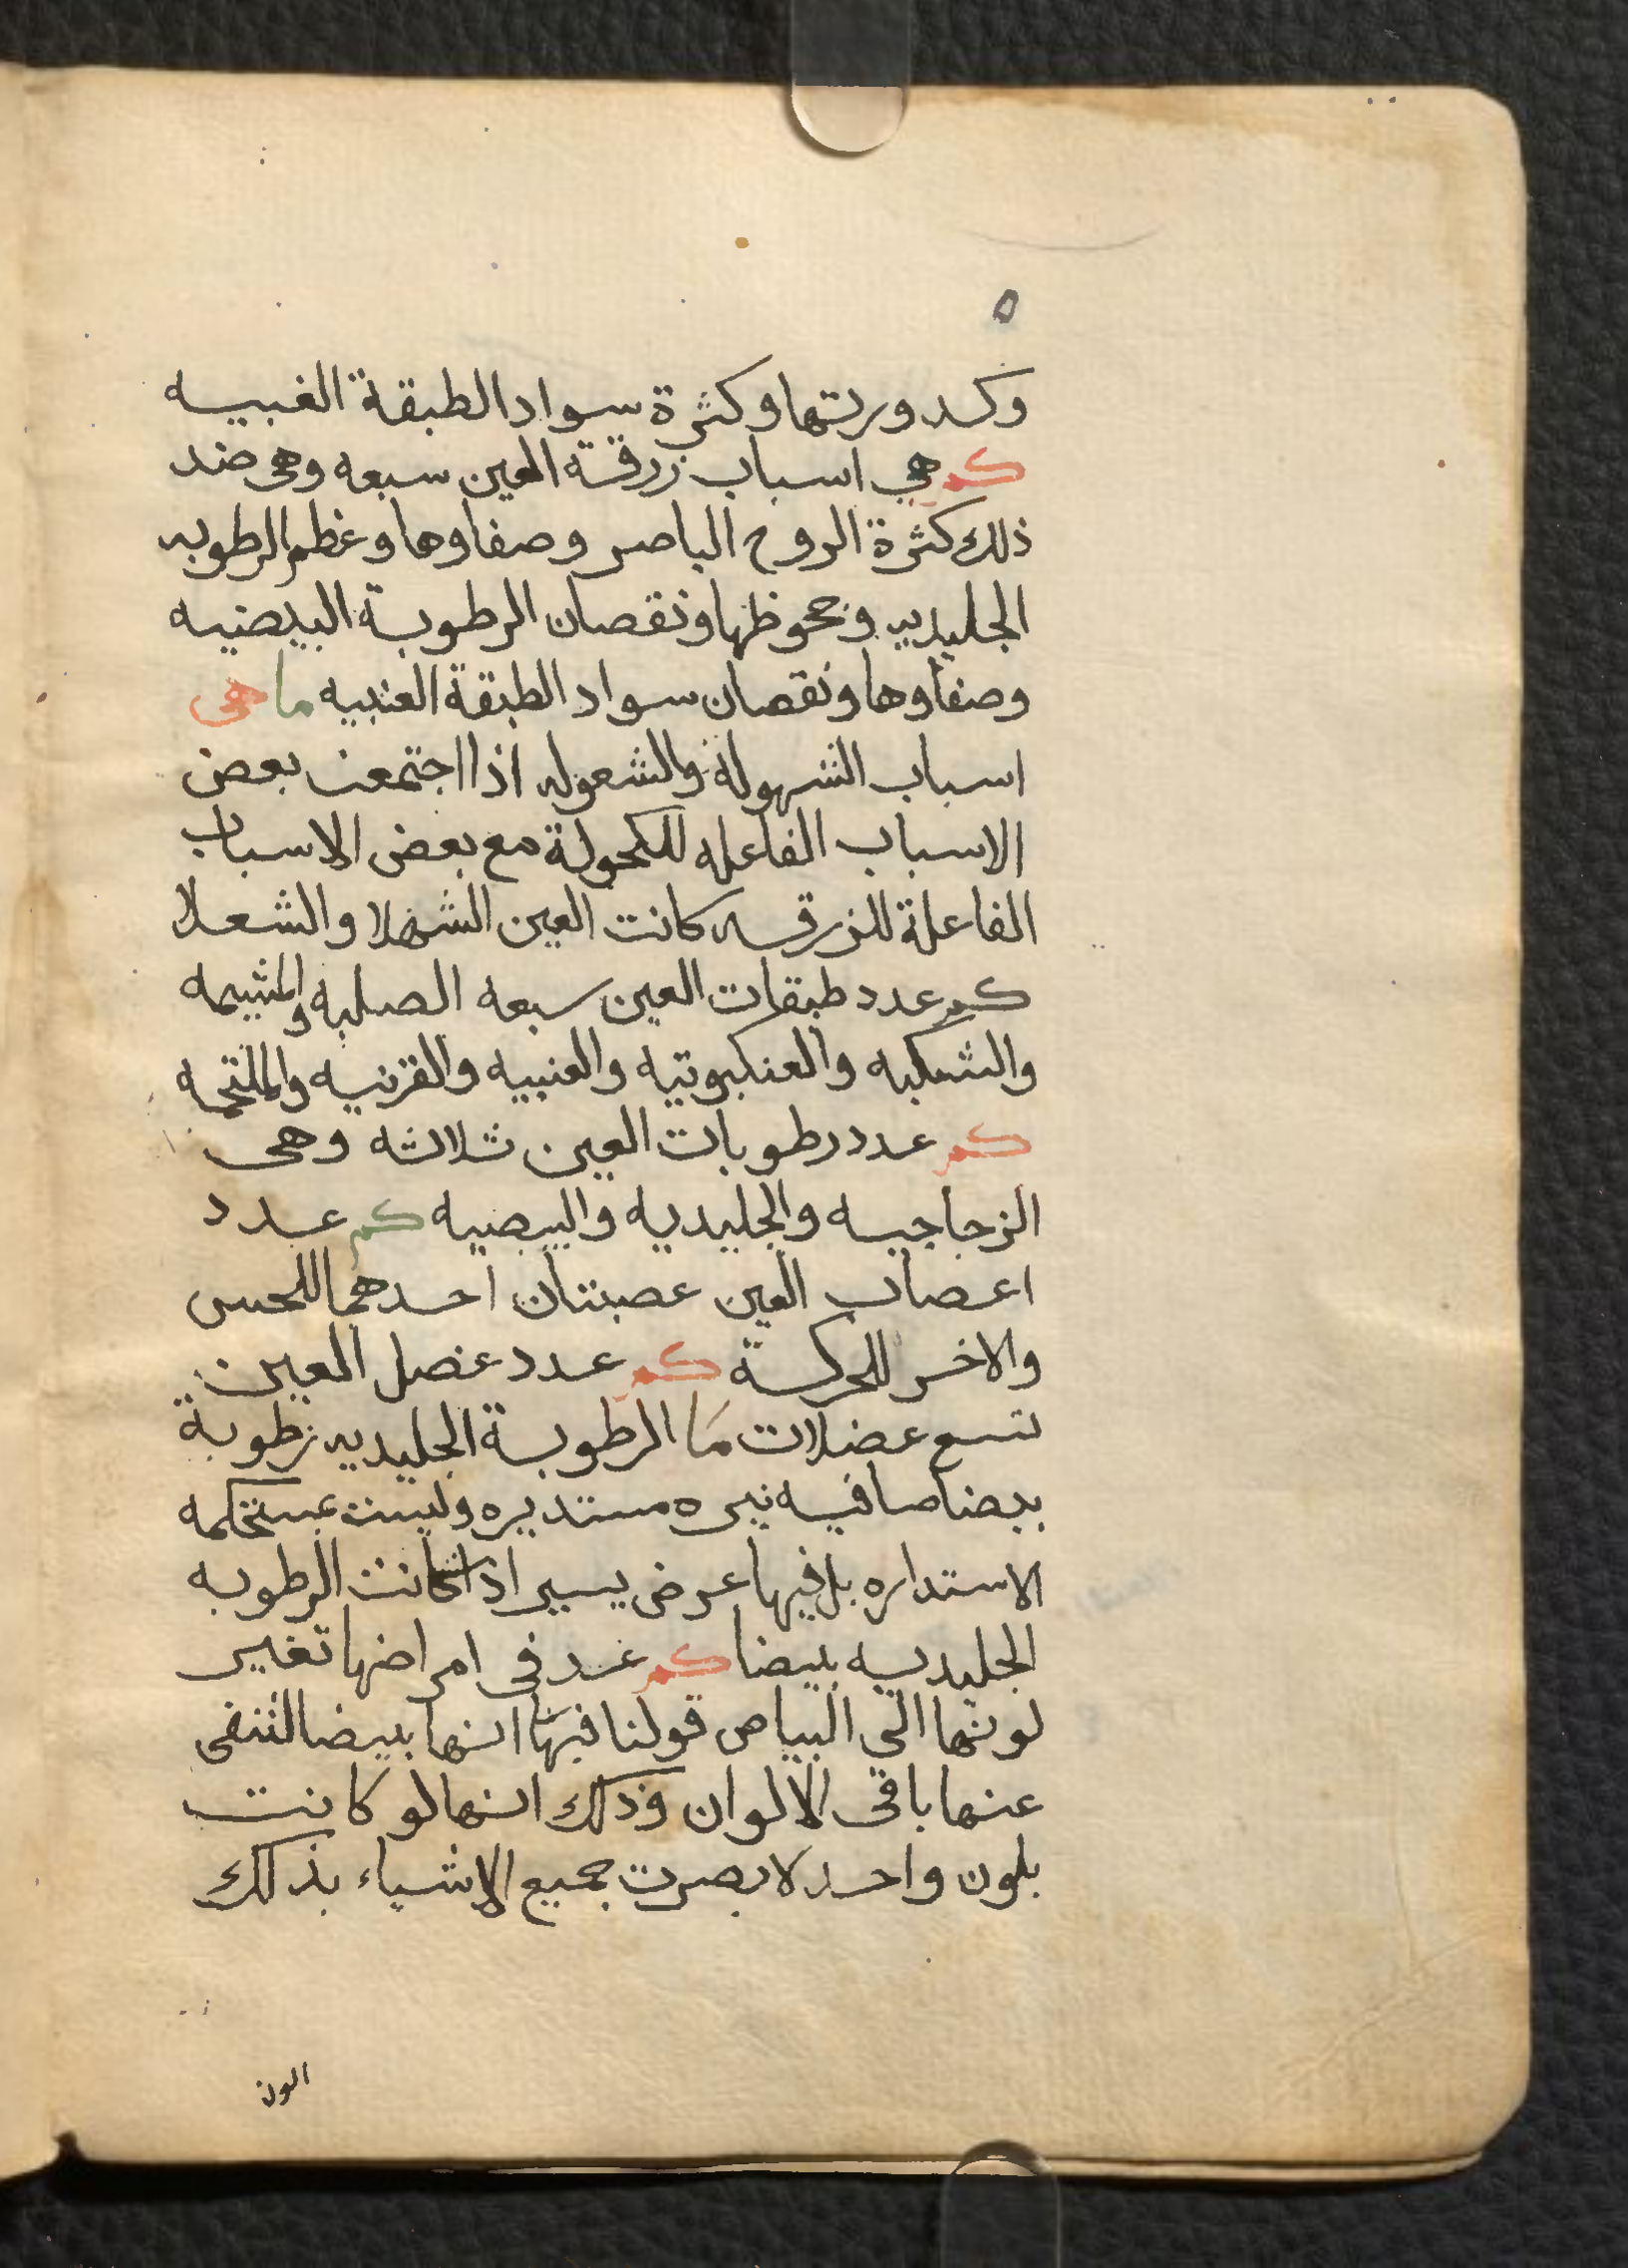 ٥
وكدورتها وكثرة سواد الطبقة الغبيه
كم هي اسباب زرقة العين سبعه وهى ضد
ذلك كثرة الروح الباصر وصفاوها وعظم الرطوبه
الجليديه وجحوظها ونقصان الرطوبة البيضيه
وصفاوها ونقصان سواد الطبقة العنبيه ما هى
اسباب الشهولة والشعوله اذا اجتمعت بعض
الاسباب الفاعله للكحولة مع بعض الاسباب
الفاعلة للزرقه كانت العين الشهلا والشعلا
كم عدد طبقات العين سبعه الصلبه والمشيمه
والشبكيه والعنكبوتيه والعنبيه والقرنيه والملتحمه
كم عدد رطوبات العين ثلاثه وهى
الزجاجيه والجليديه والبيضيه كم عدد
اعصاب العين عصبتان احدهما للحس
والاخر للحركة كم عدد عضل العين
تسع عضلات ما الرطوبة الجليديه رطوبة
بيضا صافيه نيره مستديره وليست بمستحكمه
الاستداره بل فيها عرض يسير اذا كانت الرطوبه
الجليديه بيضا كم عد فى امراضها تغير
لونها الى البياض قولنا فيها انها بيضا لننفى
عنها باقى الالوان وذلك انها لو كانت
بلون واحد لابصرت جميع الاشياء بذلك
الون